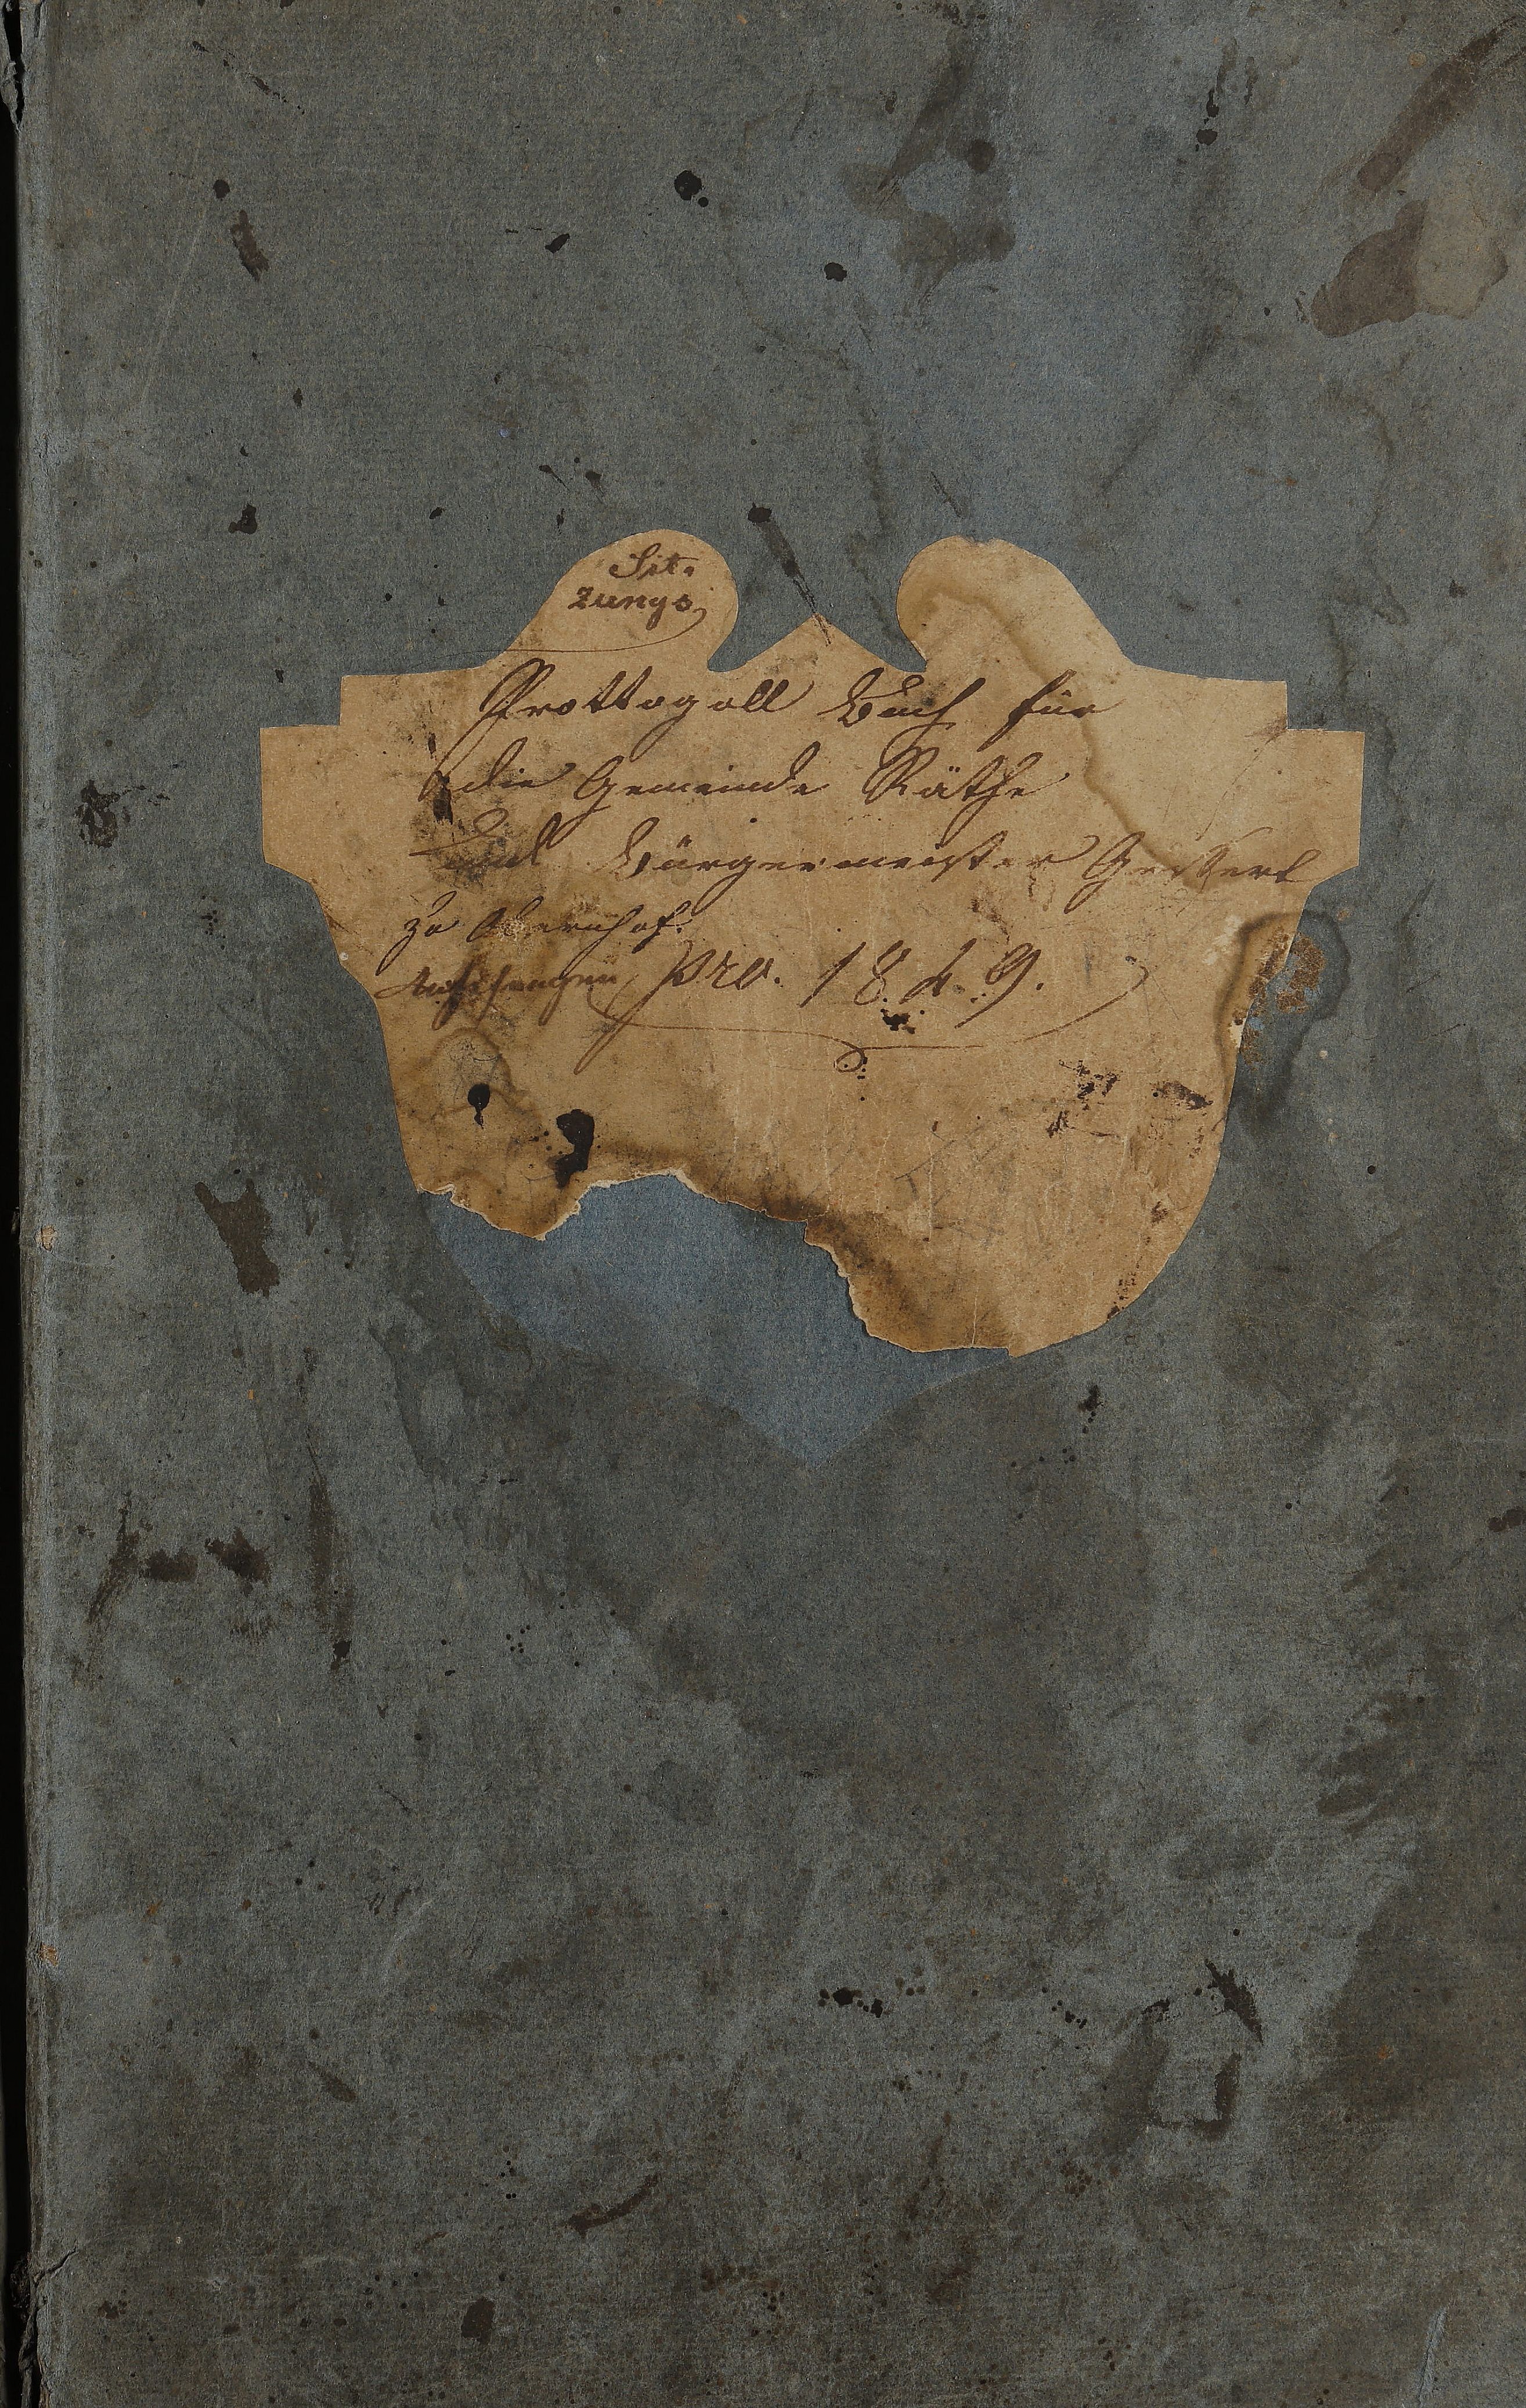 Sit-
zungs
Prottogoll Buch für
die Gemeinde Räthe
und Bürgermeister
zu Obernhof.
pro. 1849.